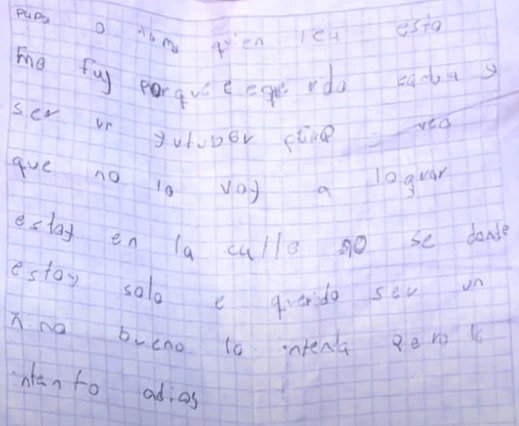 papa o mama quien lea esto
me fuy porque e querido
ser un yutuber y veo
que no lo voy a lograr
estoy en la calle no se donde
estoy solo e querido ser un
nino bueno lo intenta pero lo
intento adios